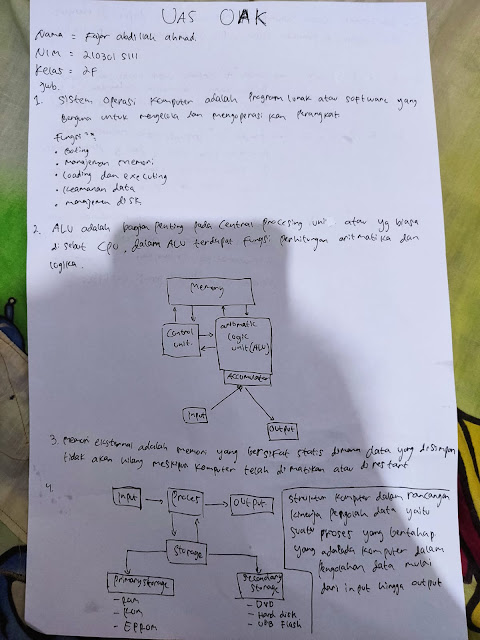 UAS OAK
Nama = Fajar abdillah ahmad.
NIM = 210301 5111
Kelas = 2F
Jwb.
1. Sistem operasi Komputer adalah Program lunak atau software yang
Berguna untuk mengelola dan mengoperasi kan perangkat.
Fungsi :
• Boting
• Manajeman memori
• Loading dan executing
• Keamanan data
• manajemen disk
2. ALU adalah bagian penting pada Central Procesing unit atau yg biasa
di sebut CPU, dalam ALU terdapat fungsi perhitungan aritmatika dan
logika.
Memory
Control
unit.
aritmatic
Logic
unit (ALU)
Accumulator
Input
Output
3. Memori eksternal adalah memori yang bersifat statis dimana data yang disimpan
tidak akan hilang meskipun komputer telah di matikan atau di restart
4.
Input
Proses
Output
Storage
Primary storage
- RAM
- ROM
- EPROM
Secondary
Storage
- DVD
- Hard disk
- USB Flash
Struktur komputer dalam rancangan
kinerja pengolah data yaitu
suatu proses yang bertahap
yang ada pada komputer dalam
pengolahan data mulai
dari input hingga output